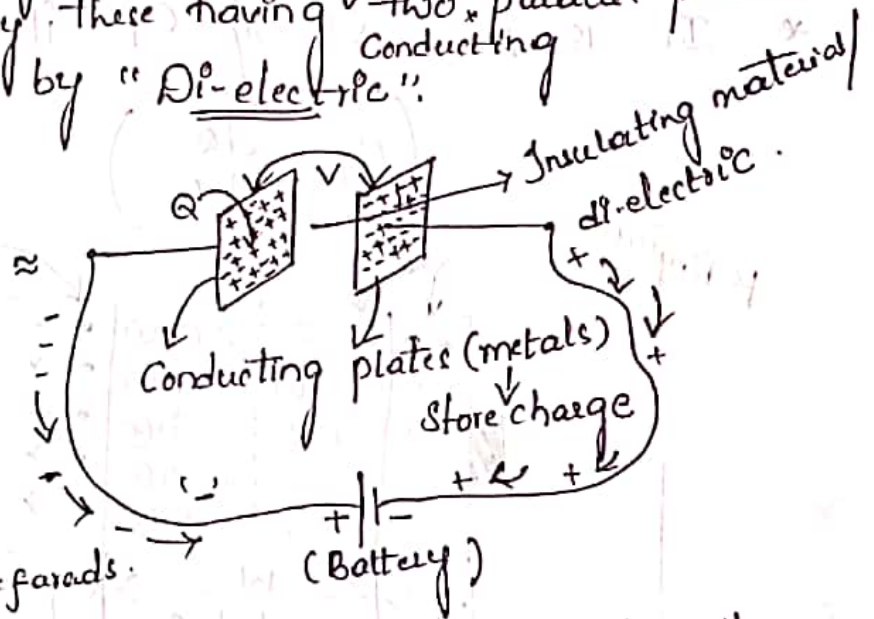 y". These having two parallel
Conducting
by "Di-electric".
Insulating material
di-electric.
Q
V
+
≈
Conducting plates (metals)
Store charge
+ -
(Battery)
farads.